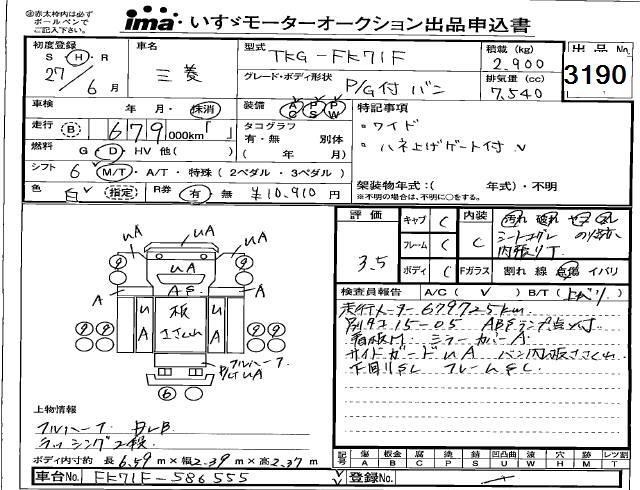 ㊟赤太枠内は必ず
ボールペンで
ご記入下さい。
ima いすゞモーターオークション出品申込書
初度登録 S・H・R 27年 6月
車名 三菱
型式 TKG-FK71F
グレード・ボディ形状 P/G付 バン
積載(kg) 2,900
排気量(cc) 7,540
出品No. 3190
車検 年 月・抹消
装備 AC PS PW
走行 B 679,000km「 」
タコグラフ 有・無 別体 ( 年 月)
燃料 G・D・HV 他( )
シフト 6 M/T・A/T・特殊(2ペダル・3ペダル)
色 白 (指定) R券 有・無 ¥10,910円
特記事項
・ワイド
・ハネ上げゲート付
架装物年式:( 年式)・不明
※不明の場合は、不明に○をする。
評価 3.5
キャブ C
フレーム C
ボディ C
内装 C
汚れ 破れ
シートコゲ
内張り
Fガラス 割れ 線 点傷 イバリ
検査員報告 A/C( ✓ ) B/T(
走行メーター 679725km
別92 15-05 ABSランプ点灯
看板灯 ミラーカバーA
サイドガードUA バン内板ささくれ
下回りSC フレームSC
UA UA
9 9
UA
A AS A
UA 板ささくれ UA
9 9 9 9
フルハーフ
P/G UA
6
上物情報
フルハーフ
ラッシング2段
ボディ内寸約 長6.59m×幅2.39m×高2.37m
車台No. FK71F-586555
登録No.
記号 傷A 板金B 腐C 塗P 錆S 凹凸曲U 波W 穴H 跡M レツ割T